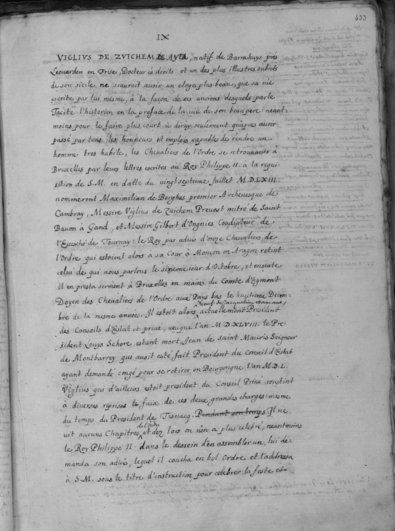 433
IX
VIGLIUS DE ZUICHEM DE AYTA, natif de Barrahuys près
Leeuwarden en Frise, Docteur és droits et un des plus illustres subiets
de son siècle, ne scauroit auoir un eloge plus beau, que sa vie
escrite par luy mesme, à la façon de ces anciens desquels parle
Tacite l'historien en la preface de la vie de son beaupere: neant-
moins pour le faire plus court ie diray seulement qu'apres auoir
passé par tous les honneurs et emplois capables de rendre un
homme tres habile, les Cheualiers de l'Ordre se retrouuants à
Bruxelles par leurs lettres escrites au Roy Philippe II à la requi-
sition de S.M. en datte du vingtseptieme Juillet M.D.LXIII.
nommerent Maximilian de Berghes premier Archeuesque de
Cambray, Messire Viglius de Zuichem Preuost mitré de Saint
Bauon à Gand, et Messire Gilbert d'Ongnies Coadiuteur de
l'Euesché de Tournay: le Roy par aduis d'onze Cheualiers de
l'Ordre qui estoient alors à sa Cour à Monçon en Aragon retint
celui de qui nous parlons le sixiemeiour d'Octobre, et ensuite
il en presta serment à Bruxelles en mains du Comte d'Egmont
Doyen des Cheualiers de l'Ordre aux Pays bas le huitieme Decem-
bre de la mesme année. Il estoit alors actuellement President
des Conseils d'Estat et priué, ueu que l'an M.D.XLVIII. le Pre-
sident Louys Schore estant mort, Jean de saint Mauris Seigneur
de Montbarrey qui auoit esté fait President du Conseil d'Estat
ayant demandé congé pour se retirer en Bourgoigne l'an M.D.L.
Viglius qui d'ailleurs estoit president du Conseil Priué soustint
à diuerses reprises le faix de ces deux grandes charges mesme
du temps du President de Tisnacq. Pendant son temps Il ne
uit aucuns Chapitres, et dez lors on n'en a plus celebré, neantmoins
le Roy Philippe II. dans le dessein d'en assembler un, lui de-
manda son aduis, lequel il coucha en bel ordre, et l'addressa
à S.M. sous le titre d'instruction pour celebrer la feste et